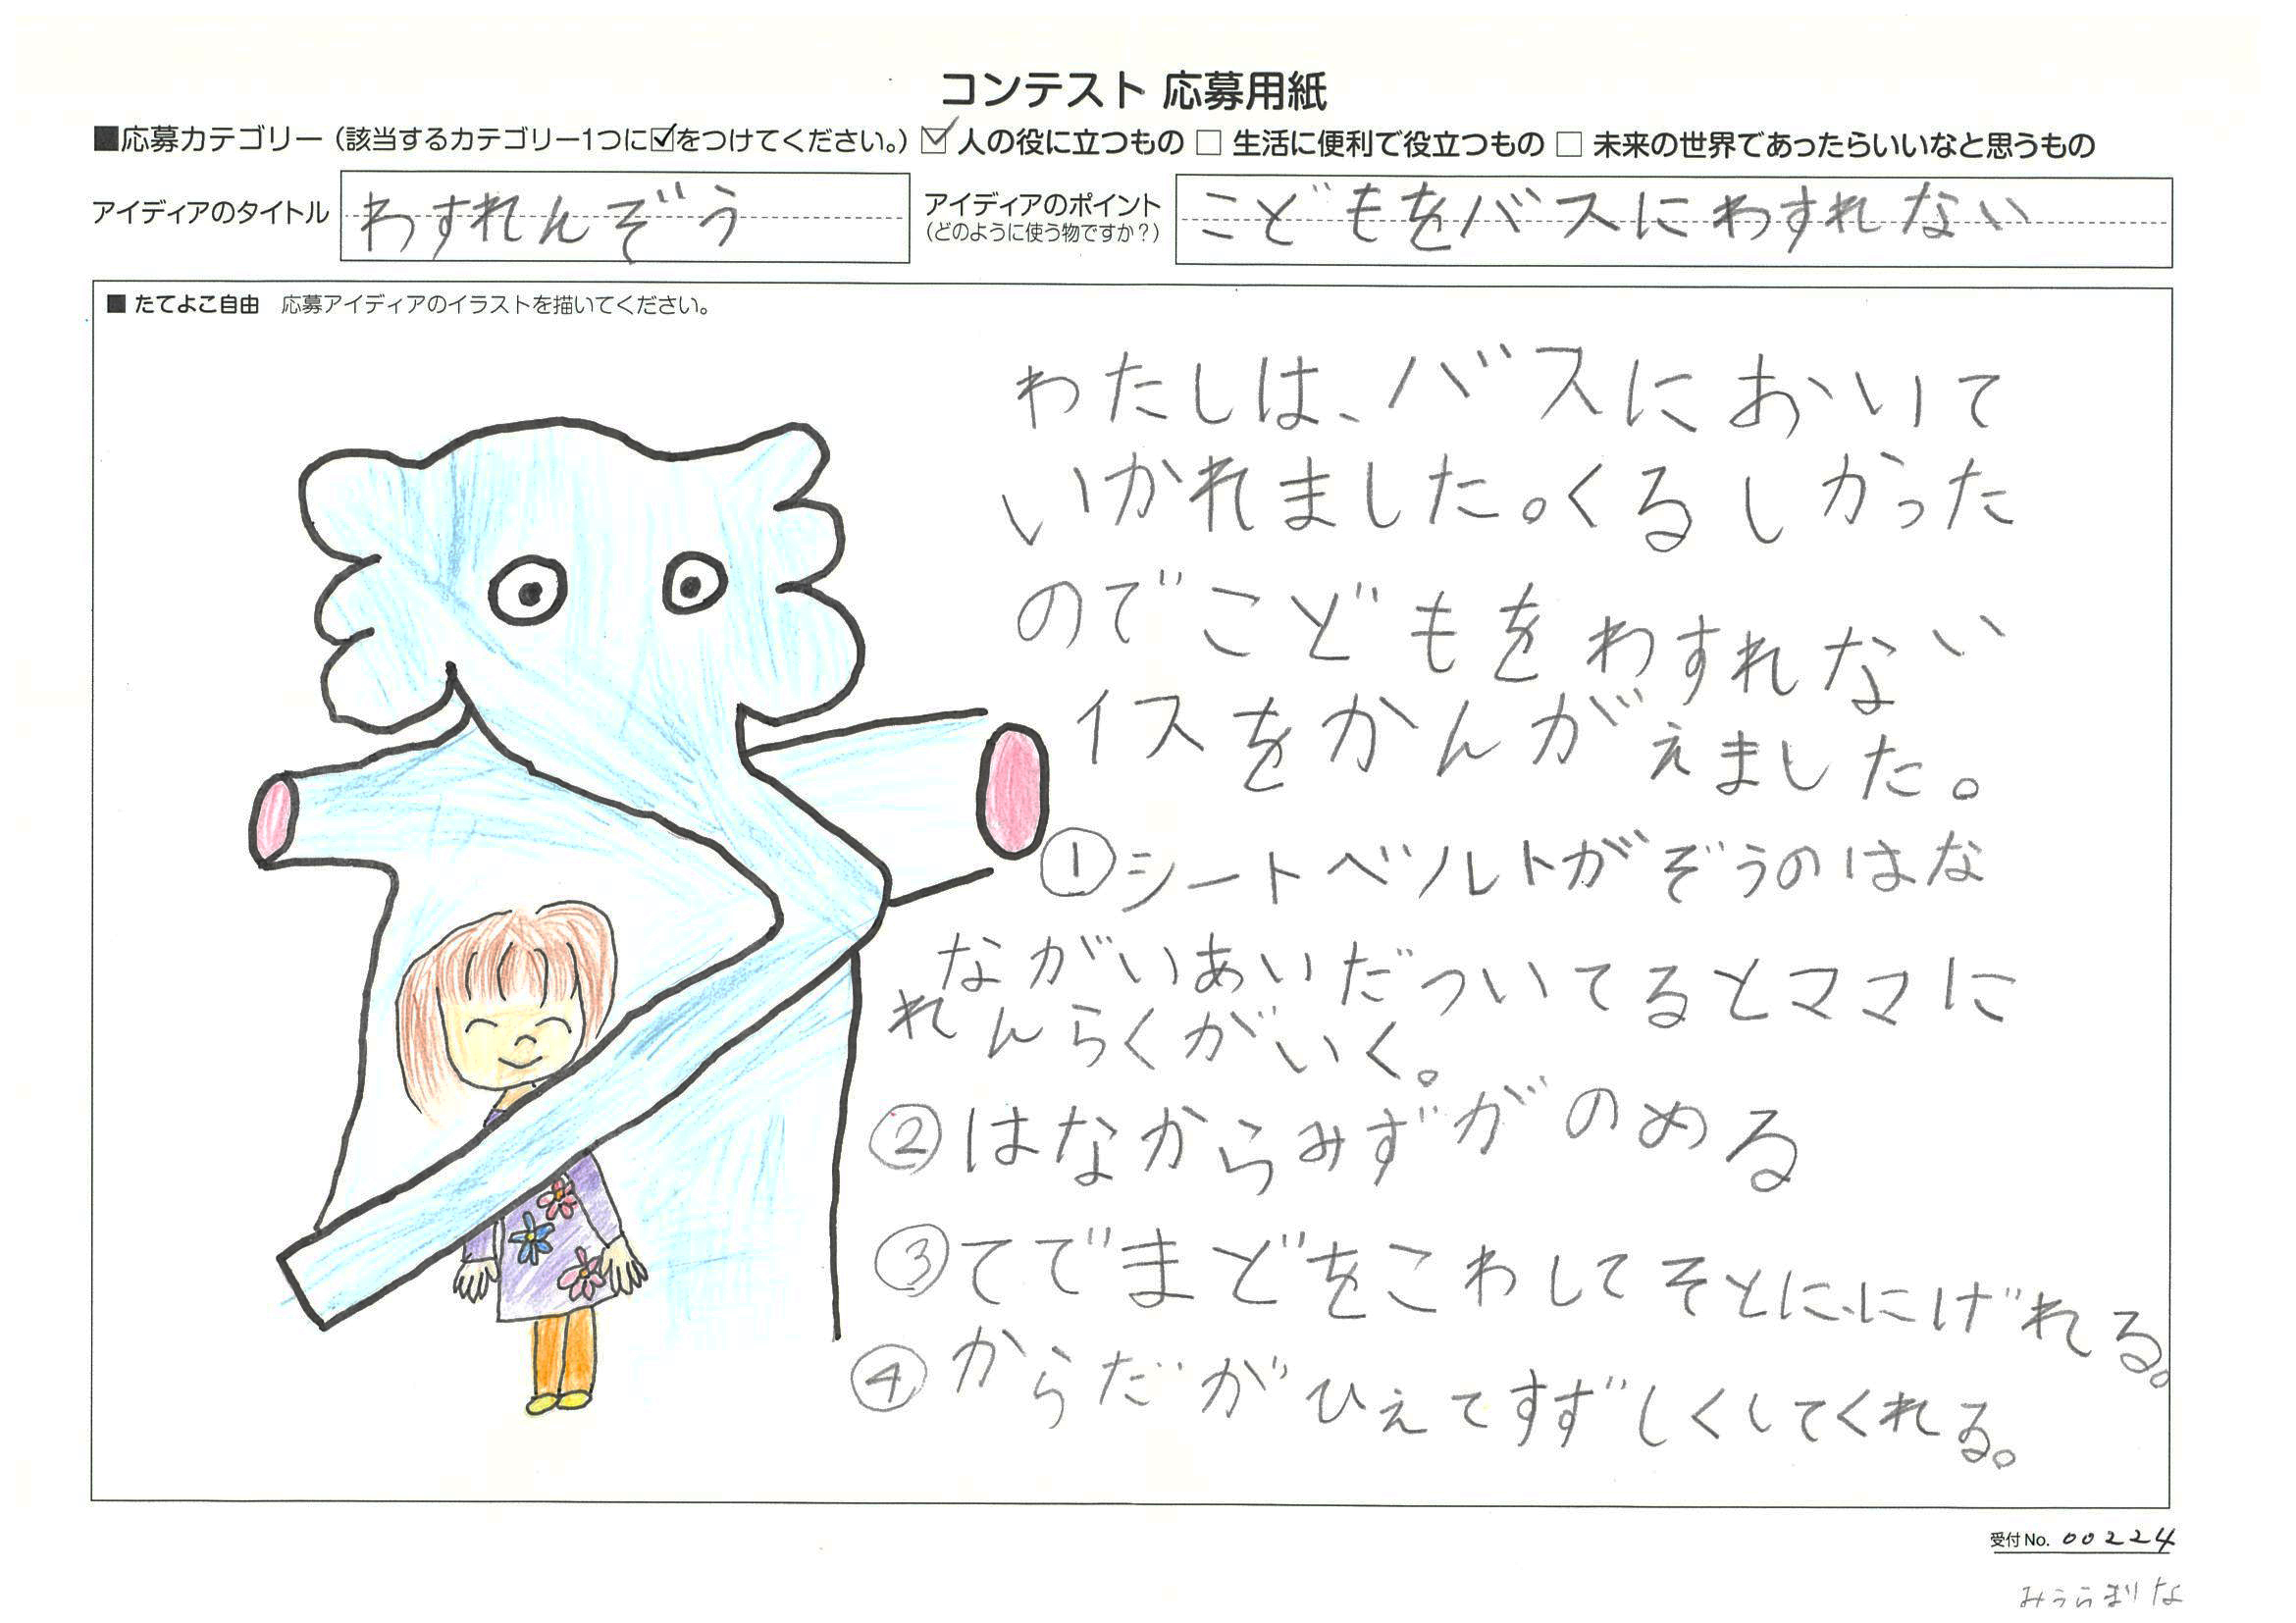 コンテスト 応募用紙
■応募カテゴリー（該当するカテゴリー1つに☑をつけてください。）☑ 人の役に立つもの □ 生活に便利で役立つもの □ 未来の世界であったらいいなと思うもの
アイディアのタイトル わすれんぞう
アイディアのポイント こどもをバスにわすれない
（どのように使う物ですか？）
■ たてよこ自由 応募アイディアのイラストを描いてください。
わたしは、バスにおいて
いかれました。くるしかった
のでこどもをわすれない
イスをかんがえました。
①シートベルトがぞうのはな
ながいあいだついてるとママに
れんらくがいく。
②はなからみずがのめる
③てでまどをこわしてそとに、にげれる。
④からだがひえてすずしくしてくれる。
受付No. 00224
みうらまりな